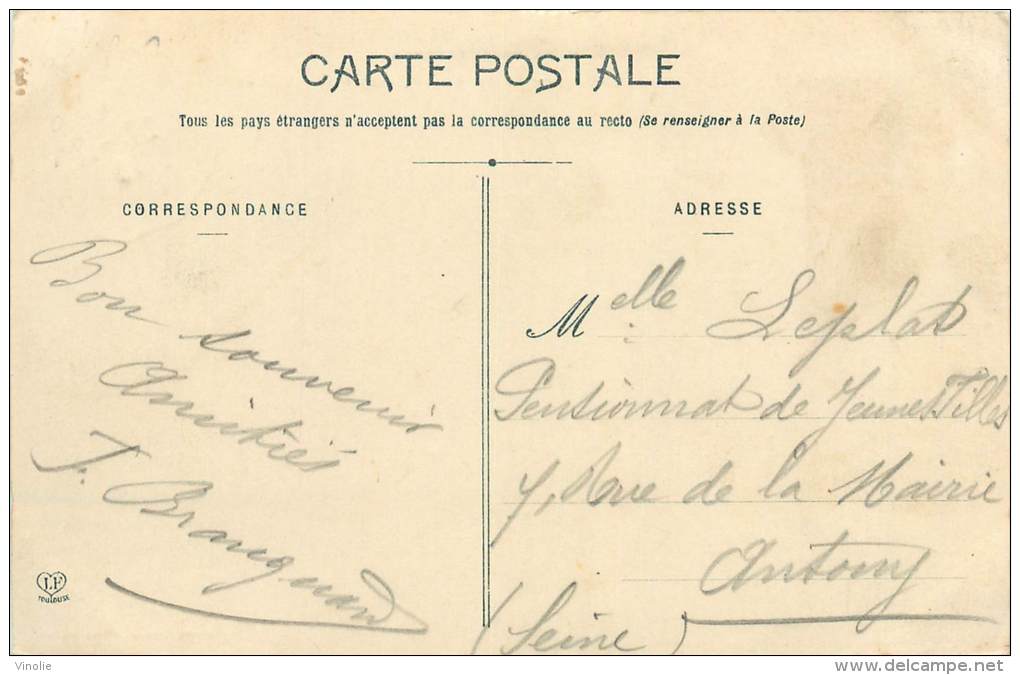 CARTE POSTALE
Tous les pays étrangers n'acceptent pas la correspondance au recto (Se renseigner à la Poste)
CORRESPONDANCE
Bon souvenir
Amitiés
J. Branquard
LF
TOULOUSE
ADRESSE
Melle Leplat
Pensionnat de Jeunes Filles
7, Rue de la Mairie
Antony
(Seine)
Vinolie
delcampe.net